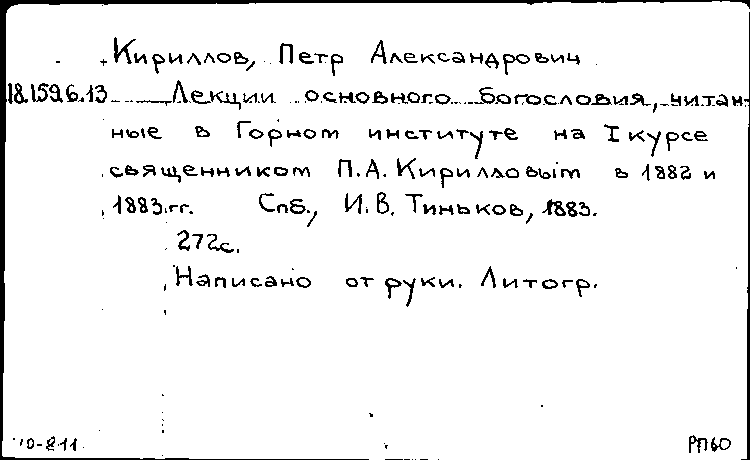 Кириллов, Петр Александрович
18.159.6.13 Лекции основного богословия, читан-
ные в Горном институте на I курсе
священником П.А. Кирилловым в 1882 и
1883.гг. Спб., И.В. Тиньков, 1883.
272с.
Написано от руки. Литогр.
70-811 РП60